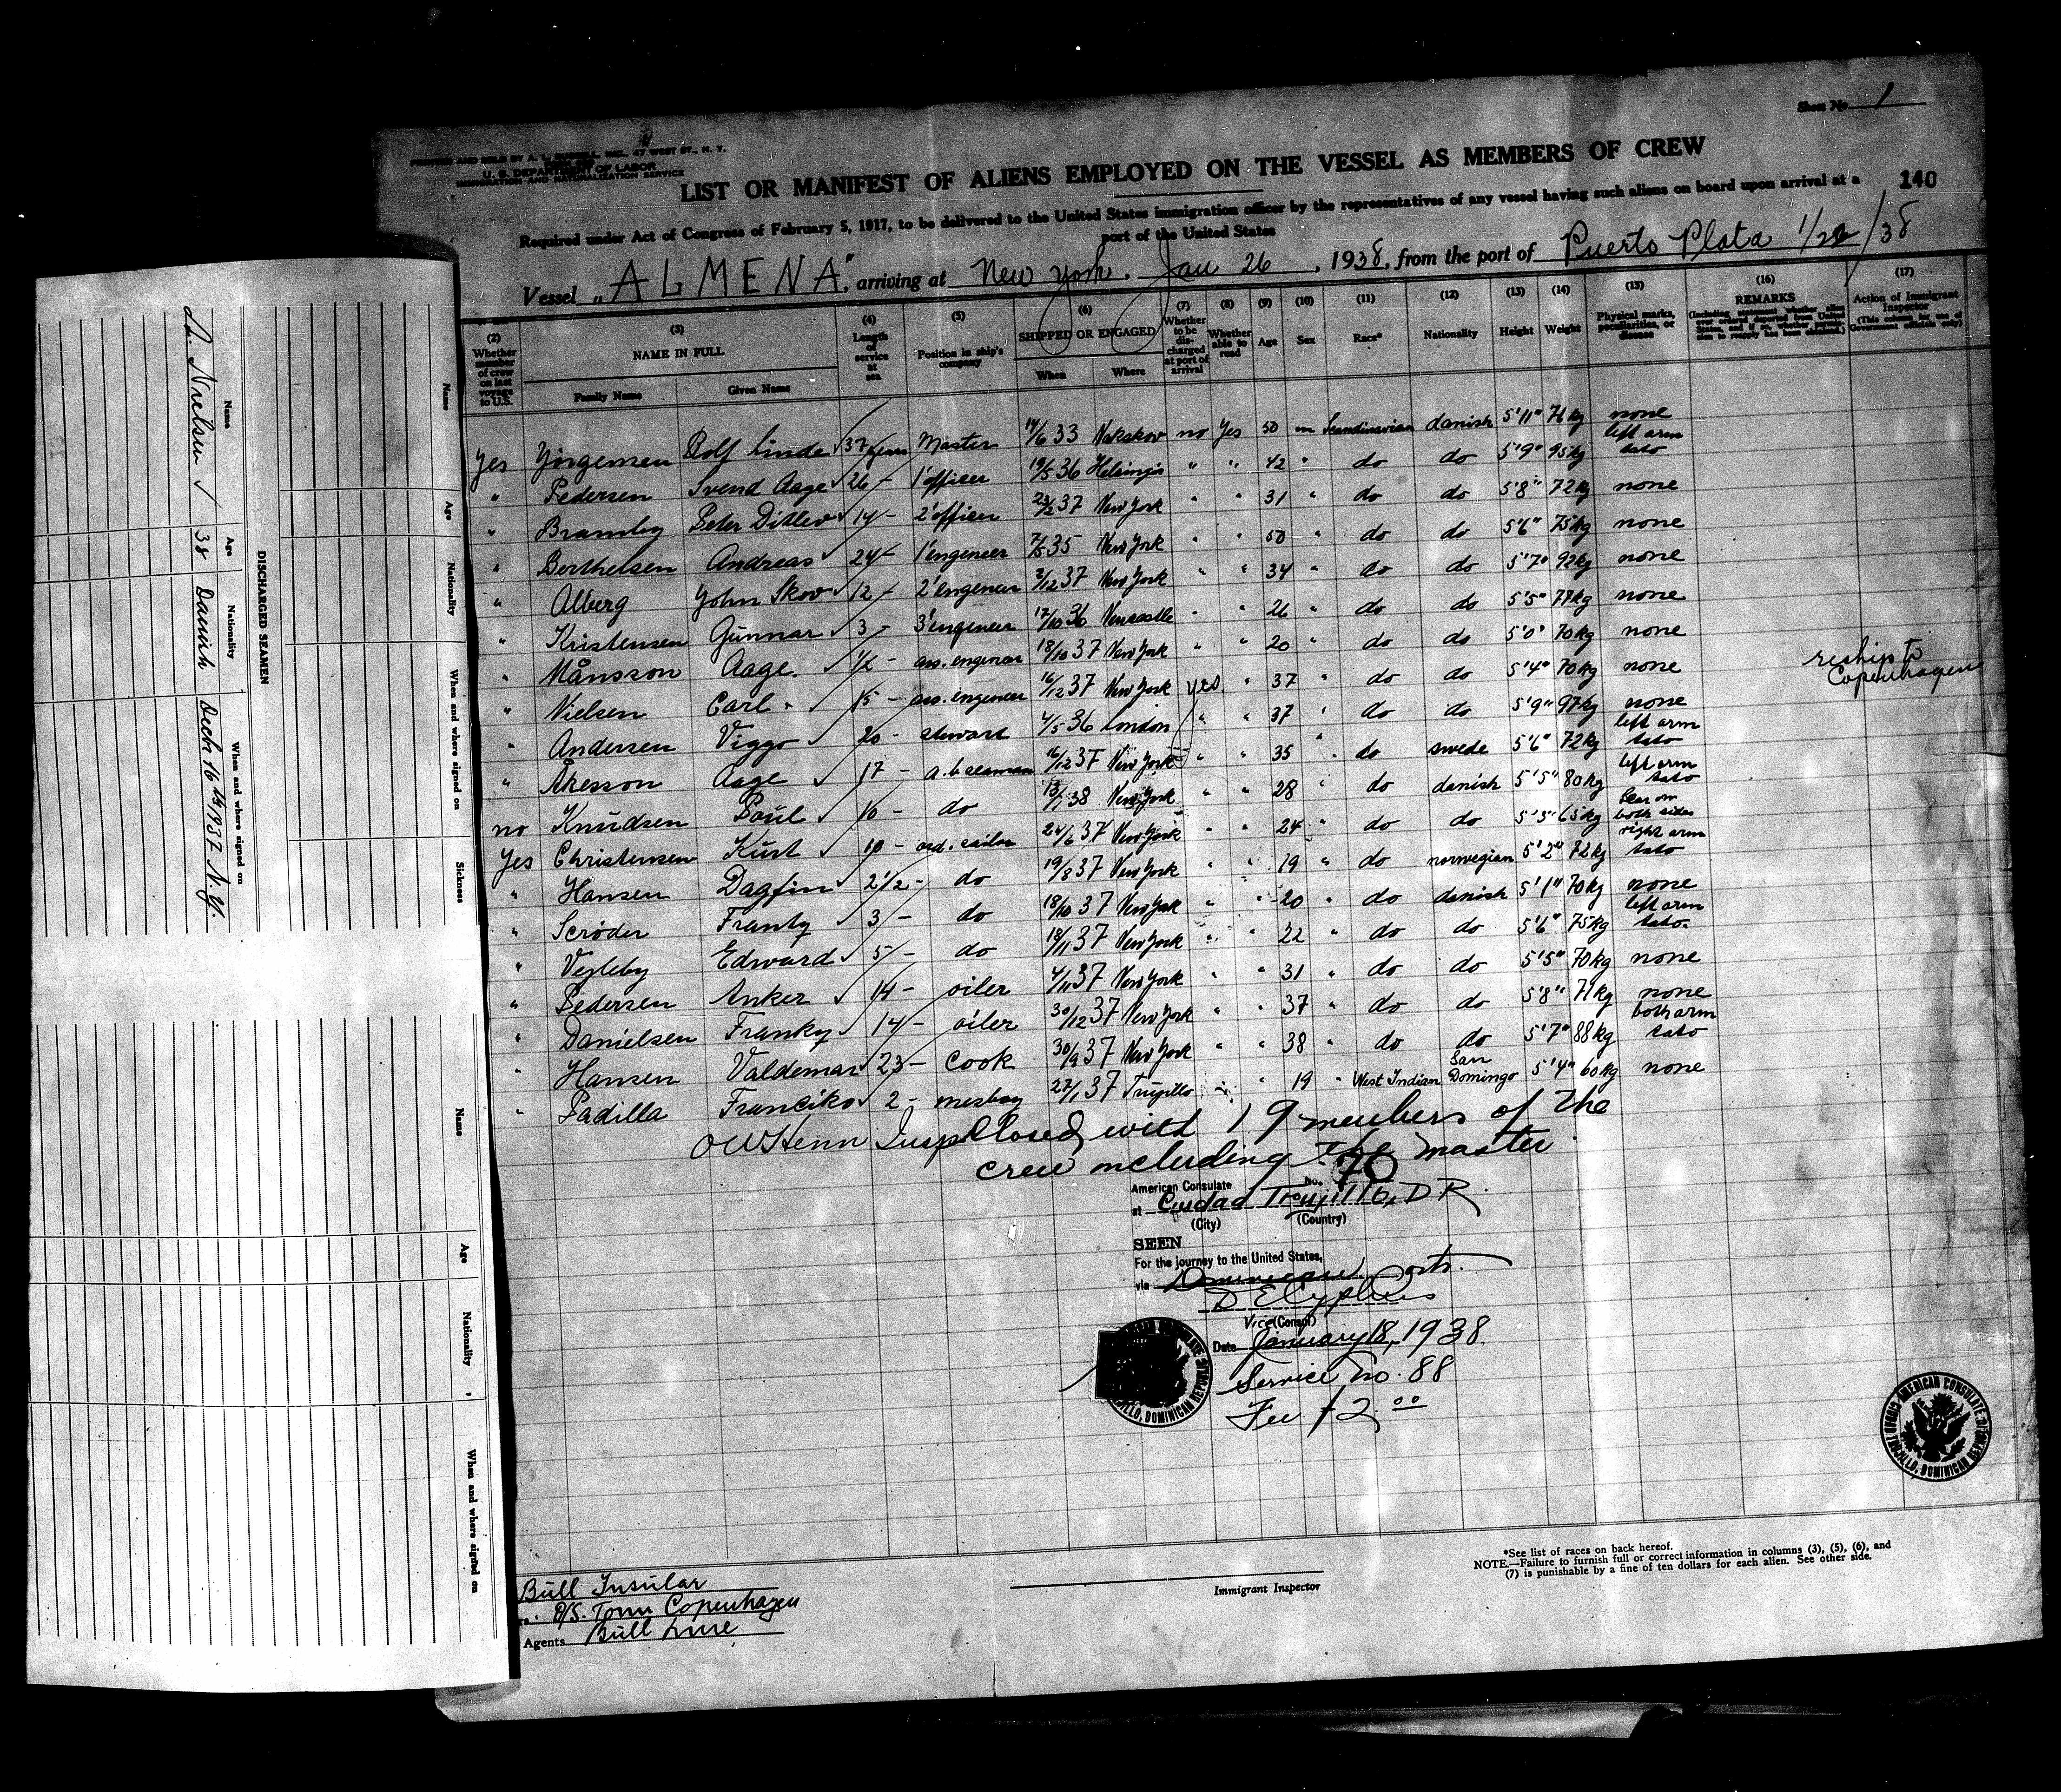 Sheet No. 1
PRINTED AND SOLD BY A. L. 47 WEST ST., N. Y.
U. S. DEPARTMENT OF LABOR
IMMIGRATION AND NATURALIZATION SERVICE
LIST OR MANIFEST OF ALIENS EMPLOYED ON THE VESSEL AS MEMBERS OF CREW
140
Required under Act of Congress of February 5, 1917, to be delivered to the United States immigration officer by the representatives of any vessel having such aliens on board upon arrival at a
port of the United States
Vessel "ALMENA", arriving at New York, Jan 26, 1938, from the port of Puerto Plata 1/22/38
(2) (3) (4) (5) (6) (7) (8) (9) (10) (11) (12) (13) (14) (15) (16) (17)
Whether member of crew on last voyage to U.S. NAME IN FULL Family Name Given Name Length of service at sea Position in ship's company SHIPPED OR ENGAGED When Where Whether to be discharged at port of arrival Whether able to read Age Sex Race* Nationality Height Weight Physical marks, peculiarities, or disease REMARKS Action of Immigrant Inspector (This column for use of Government officials only)
yes Jörgensen Rolf Linde 37 years Master 19/6 33 Nakskov no yes 50 m Scandinavian danish 5'11" 76kg none
" Pedersen Svend Aage 26 - 1'officer 19/5 36 Helsingör " " 42 " do do 5'9" 95kg left arm tato
" Bramby Peter Ditlev 14 - 2'officer 23/2 37 New York " " 31 " do do 5'8" 72kg none
" Berthelsen Andreas 24 - 1'engeneer 7/5 35 New York " " 50 " do do 5'6" 75kg none
" Alberg John Skov 12 - 2'engeneer 2/12 37 New York " " 34 " do do 5'7" 92kg none
" Kristensen Gunnar 3 - 3'engeneer 17/10 36 Newcastle " " 26 " do do 5'5" 77kg none
" Månsson Aage 1/2 - ass. engeneer 18/10 37 New York " " 20 " do do 5'0" 70kg none
" Nielsen Carl 15 - ass. engeneer 16/12 37 New York yes " 37 " do do 5'4" 70kg none reship to Copenhagen
" Andersen Viggo 20 - stewart 4/5 36 London " " 37 " do do 5'9" 97kg none
" Åkesson Aage 17 - a.b seaman 16/12 37 New York " " 35 " do swede 5'6" 72kg left arm tato
no Knudsen Poul 10 - do 13/1 38 New York " " 28 " do danish 5'5" 80kg left arm tato
yes Christensen Kurt 10 - ord. sailor 24/6 37 New York " " 24 " do do 5'5" 65kg Scar on both sides
" Hansen Dagfin 2 1/2 - do 19/8 37 New York " " 19 " do norwegian 5'2" 72kg right arm tato
" Scröder Frantz 3 - do 18/10 37 New York " " 20 " do danish 5'1" 70kg none
" Vejleby Edward 5 - do 18/11 37 New York " " 22 " do do 5'6" 75kg left arm tato.
" Pedersen Anker 14 - oiler 4/11 37 New York " " 31 " do do 5'5" 70kg none
" Danielsen Franky 14 - oiler 30/12 37 New York " " 37 " do do 5'8" 71kg none
" Hansen Valdemar 23 - cook 30/9 37 New York " " 38 " do do 5'7" 88kg both arm tato
" Padilla Franciko 2 - mesboy 27/1 37 Trujillo " " 19 " West Indian San Domingo 5'4" 60kg none
Closed with 19 members of the
crew including the master
American Consulate No. 70
at Ciudad Trujillo, D R.
(City) (Country)
SEEN
For the journey to the United States,
via Dominican Ports.
Vice (Consul)
Date January 18, 1938.
Service No. 88
Fee $2.00
AMERICAN CONSULATE
CIUDAD TRUJILLO, DOMINICAN REPUBLIC
*See list of races on back hereof.
NOTE.—Failure to furnish full or correct information in columns (3), (5), (6), and
(7) is punishable by a fine of ten dollars for each alien. See other side.
Immigrant Inspector
Bull Insular
D/S. Torm Copenhagen
Agents Bull Line
DISCHARGED SEAMEN
Name Age Nationality When and where signed on
Nielsen 38 Danish Decb 16 1937 N.Y.
Name Age Nationality When and where signed on Sickness
Name Age Nationality When and where signed on